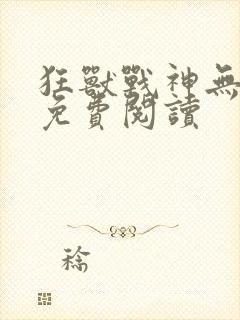 狂獸戰神無
免費閱讀
稌